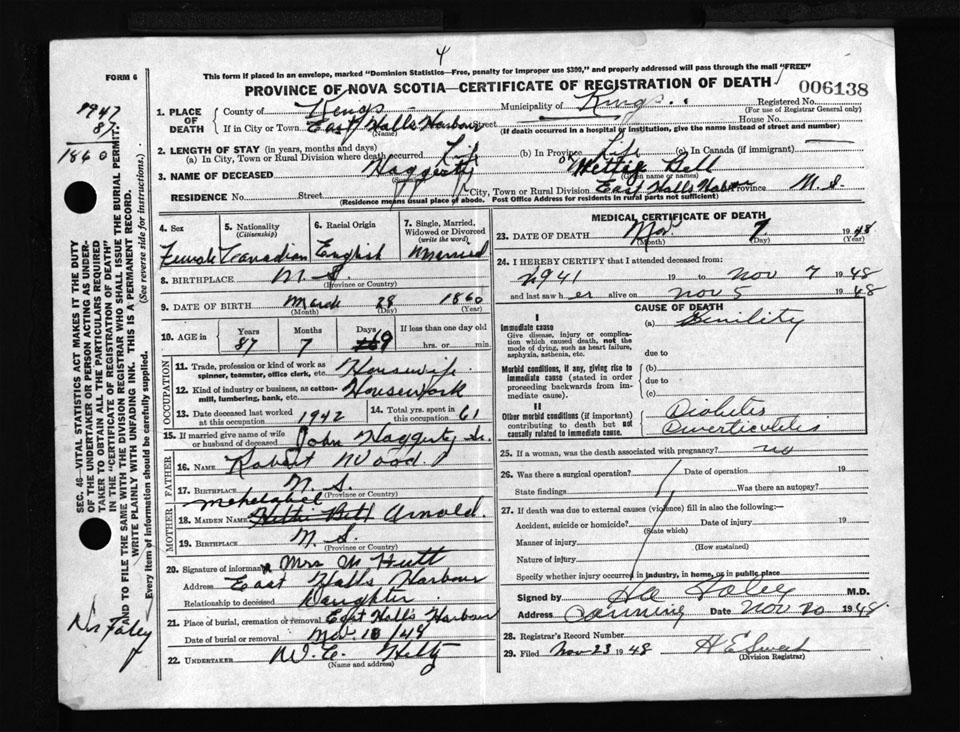 4
FORM 6
This form if placed in an envelope, marked "Dominion Statistics—Free, penalty for improper use $300," and properly addressed will pass through the mail "FREE"
PROVINCE OF NOVA SCOTIA—CERTIFICATE OF REGISTRATION OF DEATH
006138
1947
87
1860
SEC. 46—VITAL STATISTICS ACT MAKES IT THE DUTY
OF THE UNDERTAKER OR PERSON ACTING AS UNDER-
TAKER TO OBTAIN ALL THE PARTICULARS REQUIRED
IN THE "CERTIFICATE OF REGISTRATION OF DEATH"
AND TO FILE THE SAME WITH THE DIVISION REGISTRAR WHO SHALL ISSUE THE BURIAL PERMIT.
WRITE PLAINLY WITH UNFADING INK. THIS IS A PERMANENT RECORD.
Every item of information should be carefully supplied. (See reverse side for instructions.)
Dr Foley
1. PLACE OF DEATH County of Kings Municipality of Kings Registered No.
(For use of Registrar General only)
If in City or Town East Halls Harbour Street House No.
(Name) (If death occurred in a hospital or institution, give the name instead of street and number)
2. LENGTH OF STAY (in years, months and days)
(a) In City, Town or Rural Division where death occurred Life (b) In Province Life (c) In Canada (if immigrant)
3. NAME OF DECEASED Haggerty Hettie Bell
(Given name or names)
RESIDENCE No. Street City, Town or Rural Division East Halls Harbour Province N.S.
(Residence means usual place of abode. Post Office Address for residents in rural parts not sufficient)
4. Sex 5. Nationality (Citizenship) 6. Racial Origin 7. Single, Married, Widowed or Divorced (write the word)
Female Canadian English Married
8. BIRTHPLACE N.S.
(Province or Country)
9. DATE OF BIRTH March 28 1860
(Month) (Day) (Year)
10. AGE in Years Months Days If less than one day old
87 7 9 hrs. or min.
OCCUPATION
11. Trade, profession or kind of work as spinner, teamster, office clerk, etc. Housewife
12. Kind of industry or business, as cotton-mill, lumbering, bank, etc. Housework
13. Date deceased last worked at this occupation 1942 14. Total yrs. spent in this occupation 61
15. If married give name of wife or husband of deceased John Haggerty Sr.
FATHER
16. NAME Robert Wood
17. BIRTHPLACE N.S.
(Province or Country)
MOTHER
Mehetabel
18. MAIDEN NAME Hettie Bell Arnold.
19. BIRTHPLACE N.S.
(Province or Country)
20. Signature of informant Mrs M Hutt
Address East Halls Harbour
Relationship to deceased Daughter
21. Place of burial, cremation or removal East Hall's Harbour
Date of burial or removal Nov. 10/48
22. UNDERTAKER W.C. Hiltz
(Name and address)
MEDICAL CERTIFICATE OF DEATH
23. DATE OF DEATH Nov. 7 1948
(Month) (Day) (Year)
24. I HEREBY CERTIFY that I attended deceased from:
1941 19 to Nov 7 1948
and last saw her alive on Nov 5 1948
CAUSE OF DEATH
I
Immediate cause (a) Senility
Give disease, injury or complication which caused death, not the mode of dying, such as heart failure, asphyxia, asthenia, etc. due to
Morbid conditions, if any, giving rise to immediate cause (stated in order proceeding backwards from immediate cause). (b)
due to
(c)
II
Other morbid conditions (if important) contributing to death but not causally related to immediate cause. Diabetes
Diverticulitis
25. If a woman, was the death associated with pregnancy? no
26. Was there a surgical operation? Date of operation 19
State findings Was there an autopsy?
27. If death was due to external causes (violence) fill in also the following:—
Accident, suicide or homicide? Date of injury 19
(State which)
Manner of injury
(How sustained)
Nature of injury
Specify whether injury occurred in industry, in home, or in public place
Signed by M.D.
Address Canning Date Nov 20 1948
28. Registrar's Record Number
29. Filed Nov 23 1948
(Division Registrar)